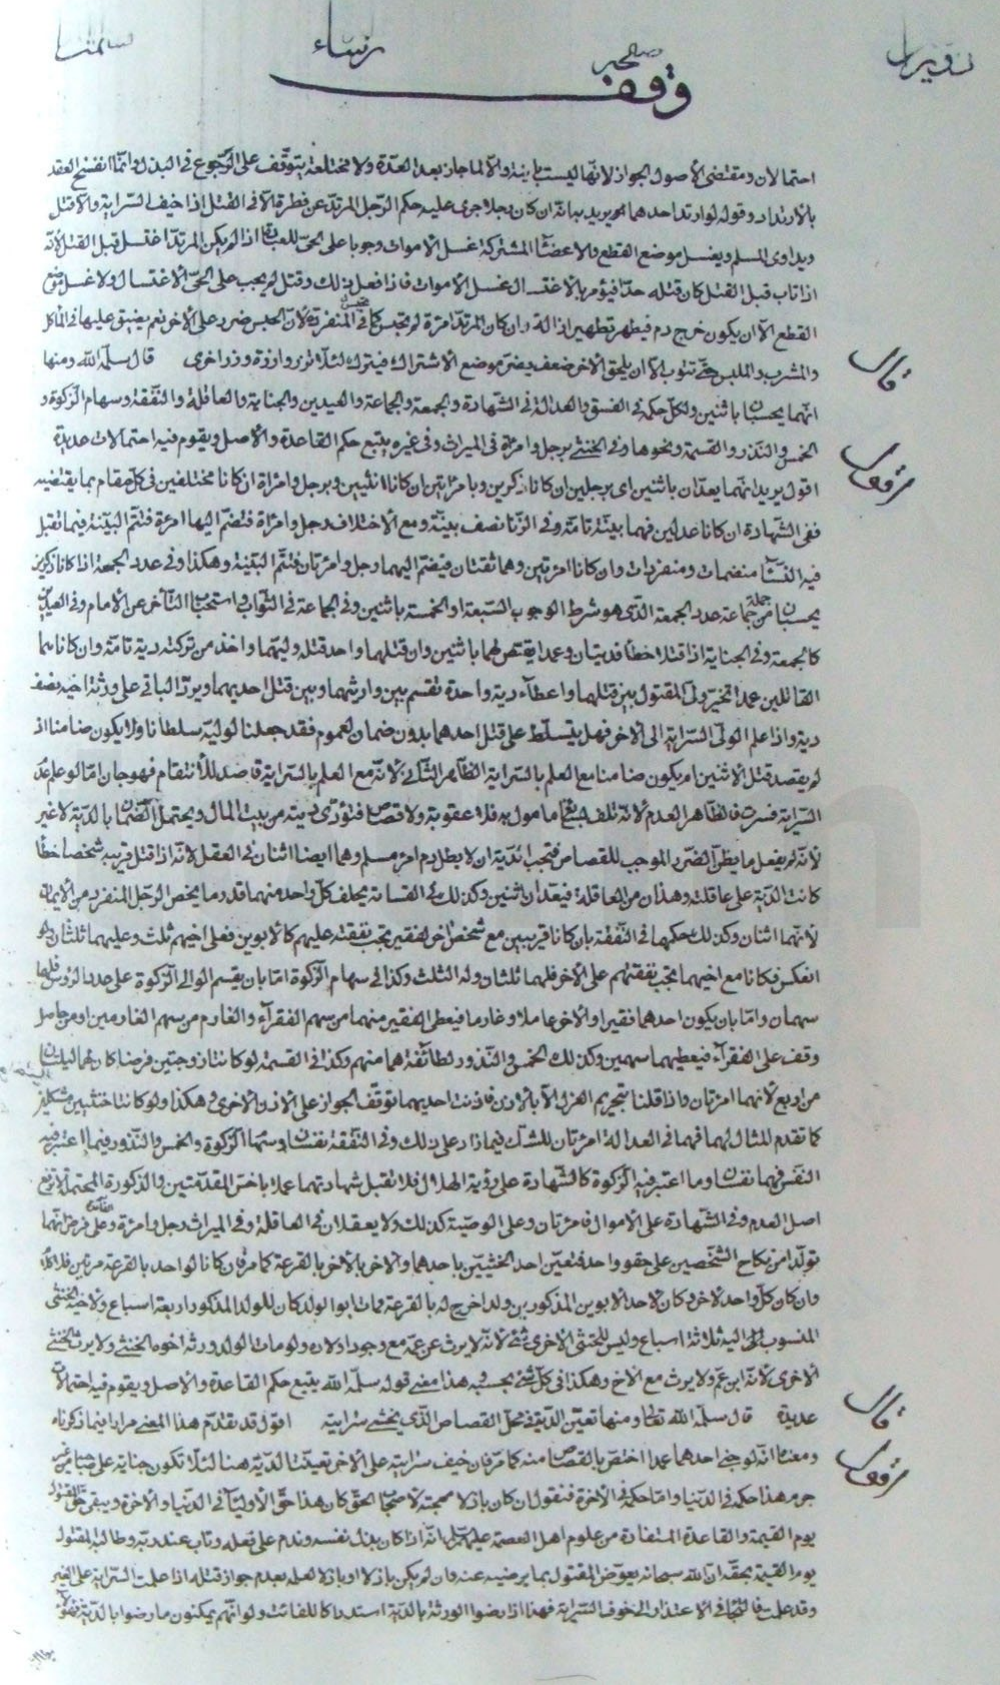 وقف
احتمالان ومقتضى الأصول الجواز لانها ليست باينة والا لما جاز بعد العدة ولا مختلعة يتوقف على الرجوع في البذل وانما انفسخ العقد
بالارتداد وقوله لو ارتد احدهما يريد به انه ان كان رجلا جرى عليه حكم الرجل المرتد عن فطرة الا في القتل اذا خيف السراية والا قتل
ويداوى المسلم ويغسل موضع القطع والاعضاء المشتركة غسل الاموات وجوبا على الحي اذا لم يكن المرتد اغتسل قبل القتل لانه
اذا تاب قبل القتل كان قتله حدا فيؤمر بالاغتسال غسل الاموات فاذا فعل ذلك وقتل لم يجب على الحي الاغتسال ولا غسل موضع
القطع الا ان يكون خرج دم فيطهر تطهير ازالة وان كان المرتد امرءة لم تحبس كما في المنفردة لان الحبس ضرر على الاخر نعم يضيق عليها في المأكل
والمشرب والملبس حتى تتوب الا ان يلحق الاخر ضعف يضر موضع الاشتراك فيترك لئلا تزر وازرة وزر اخرى قال سلمه الله ومنها
انهما يحسبان باثنين ولكل حكمه في الفسق والعدالة في الشهادة والجمعة والجماعة والعيدين والجناية والعاقلة والنفقة وسهام الزكوة و
الخمس والنذر والقسمة ونحوها وفي الخنثى برجل وامرءة في الميراث وفي غيره يتبع حكم القاعدة والاصل ويقوم فيه احتمالات عديدة
اقول يريد انهما يعدان باثنين اى برجلين ان كانا ذكرين وبامراتين ان كانا انثيين وبرجل وامراة ان كانا مختلفين في كل مقام بما يقتضيه
ففى الشهادة ان كانا عدلين فهما بينة تامة وفي الزنا نصف بينة ومع الاختلاف رجل وامراة فتضم اليها امرءة فتتم البينة فيما تقبل
فيه النساء منضمات ومنفردات وان كانا امرءتين وهما ثقتان فيضم اليهما رجل وامرءتان فتتم البينة وهكذا وفي عدد الجمعة اذا كانا ذكرين
يحسبان من جملة جماعة عدد الجمعة الذى هو شرط الوجوب السبعة او الخمسة باثنين وفي الجماعة في الثواب واستحباب التأخر عن الامام وفي العيدين
كالجمعة وفي الجناية اذا قتلا خطأ فديتان وعمدا يقتص لهما باثنين وان قتلهما واحد قتله وليهما واخذ من تركته دية تامة وان كانا هما
القاتلين عمدا تخير ولى المقتول بين قتلهما واعطاء دية واحدة تقسم بين وارثيهما وبين قتل احديهما ويرد الباقى على ورثة اخيه نصف
دية واذا علم الولى السراية الى الاخر فهل يتسلط على قتل احدهما بدون ضمان لعموم فقد جعلنا لوليه سلطانا ولا يكون ضامنا اذ
لم يقصد قتل الاثنين ام يكون ضامنا مع العلم بالسراية الظاهر الثانى لانه مع العلم بالسراية قاصد للانتقام فهو جان اما لو علم عدم
السراية فسرت فالظاهر العدم لانه تلف بشئ مامور به فلا عقوبة ولا قصاص فتؤدى ديته من بيت المال ويحتمل الضمان بالدية لا غير
لانه لم يفعل ما يظن الضرر الموجب للقصاص فتجب الدية ان لا يطل دم امرء مسلم وهما ايضا اثنان في العقل لانه اذا قتل قريبه شخصا خطأ
كانت الدية على عاقلته وهذان من العاقلة فيعدان اثنين وكذلك في القسامة يحلف كل واحد منهما قدر ما يخص الرجل المنفرد من الايمان
لانهما اثنان وكذلك حكمهما في النفقة بان كانا قريبين مع شخص اخر لفقير تجب نفقته عليهم كالابوين فعلى اخيهم ثلث وعليهما ثلثان ولو
انعكس فكانا مع اخيهما تجب نفقتهم على الاخر فلهما ثلثان وله الثلث وكذا في سهام الزكوة اما بان يقسم الوالى الزكوة على عدد الرؤس فلهما
سهمان واما بان يكون احدهما فقيرا والاخر عاملا وغارما فيعطى الفقير منهما من سهم الفقراء والغارم من سهم الغارمين او من حاصل
وقف على الفقراء فيعطيهما سهمين وكذلك الخمس والنذور لطائفة هما منهم وكذا في القسمة لو كانتا زوجتين فرضا كان لهما ليلتان
من اربع لانهما امرءتان واذا قلنا بتحريم العزل الا بالاذن فاذنت احديهما توقف الجواز على الاذن الاخرى وهكذا ولو كانتا خنثيين مشكلين
كما تقدم المثال لهما فهما في العدالة امرءتان للشك فيما زاد على ذلك وفي النفقة نفسان وسهام الزكوة والخمس والنذور فيما اعتبر فيه
النفس فهما نفسان وما اعتبر فيه الزكوة كالشهادة على رؤية الهلال فلا تقبل شهادتهما عملا باخس المقدمتين والذكورة المحتملة لا ترفع
اصل العدم وفي الشهادة على الاموال فامرءتان وعلى الوصية كذلك ولا يعقلان في العاقلة وفي الميراث رجل وامرءة وعلى فرض انهما
تولدا من نكاح الشخصين على حقو واحد فتعين احد الخنثيين باحدهما والاخر بالاخر بالقرعة كما مر فان كانا لواحد بالقرعة مرتين فلا كلام
وان كان كل واحد لاخر وكان لاحد الابوين المذكورين ولد اخرج له بالقرعة فمات ابو الولد كان للولد المذكور اربعة اسباع ولاخيه الخنثى
المنسوب اليه ثلاثة اسباع وليس للخنثى الاخرى شئ لانه لا يرث عن عمه مع وجود اولاده ولو مات الولد ورثه اخوه الخنثى ولا يرث الخنثى
الاخرى لانه ابن عم ولا يرث مع الاخ وهكذا في كل شئ بحسبه هذا معنى قوله سلمه الله يتبع حكم القاعدة والاصل ويقوم فيه احتمالات
عديدة قال سلمه الله تعالى ومنها تعين الدية في محل القصاص الذى يخشى سرايته اقول قد تقدم هذا المعنى مرارا فيما ذكرناه
ومعناه انه لو جنى احدهما عمدا اختص بالقصاص منه كما مر فان خيف سرايته على الاخر تعينت الدية هنا لئلا تكون جناية على صاحبه من غير
جرم هذا حكمه في الدنيا واما حكمه في الاخرة فنقول ان كان باذلا مهجته لاصحاب الحق كان هذا حق الاولياء في الدنيا والاخرة ويبقى حق المقتول
يوم القيمة والقاعدة المستفادة من علوم اهل العصمة عليهم السلام انه اذا كان بذل نفسه وندم على فعله وتاب عند ربه وطالبه المقتول
يوم القيمة بحقه ان الله سبحانه يعوض المقتول بما يرضيه عنه وان لم يكن باذلا او باذلا لعلمه بعدم جواز قتله اذا علمت السراية على الغير
وقد علمت فالتجأ في الاعتذار الى خوف السراية فهنا اذا رضوا الورثة بالدية استدراكا للفائت ولو انهم يمكنون ما رضوا بالدية
قال
اقول
قال
اقول